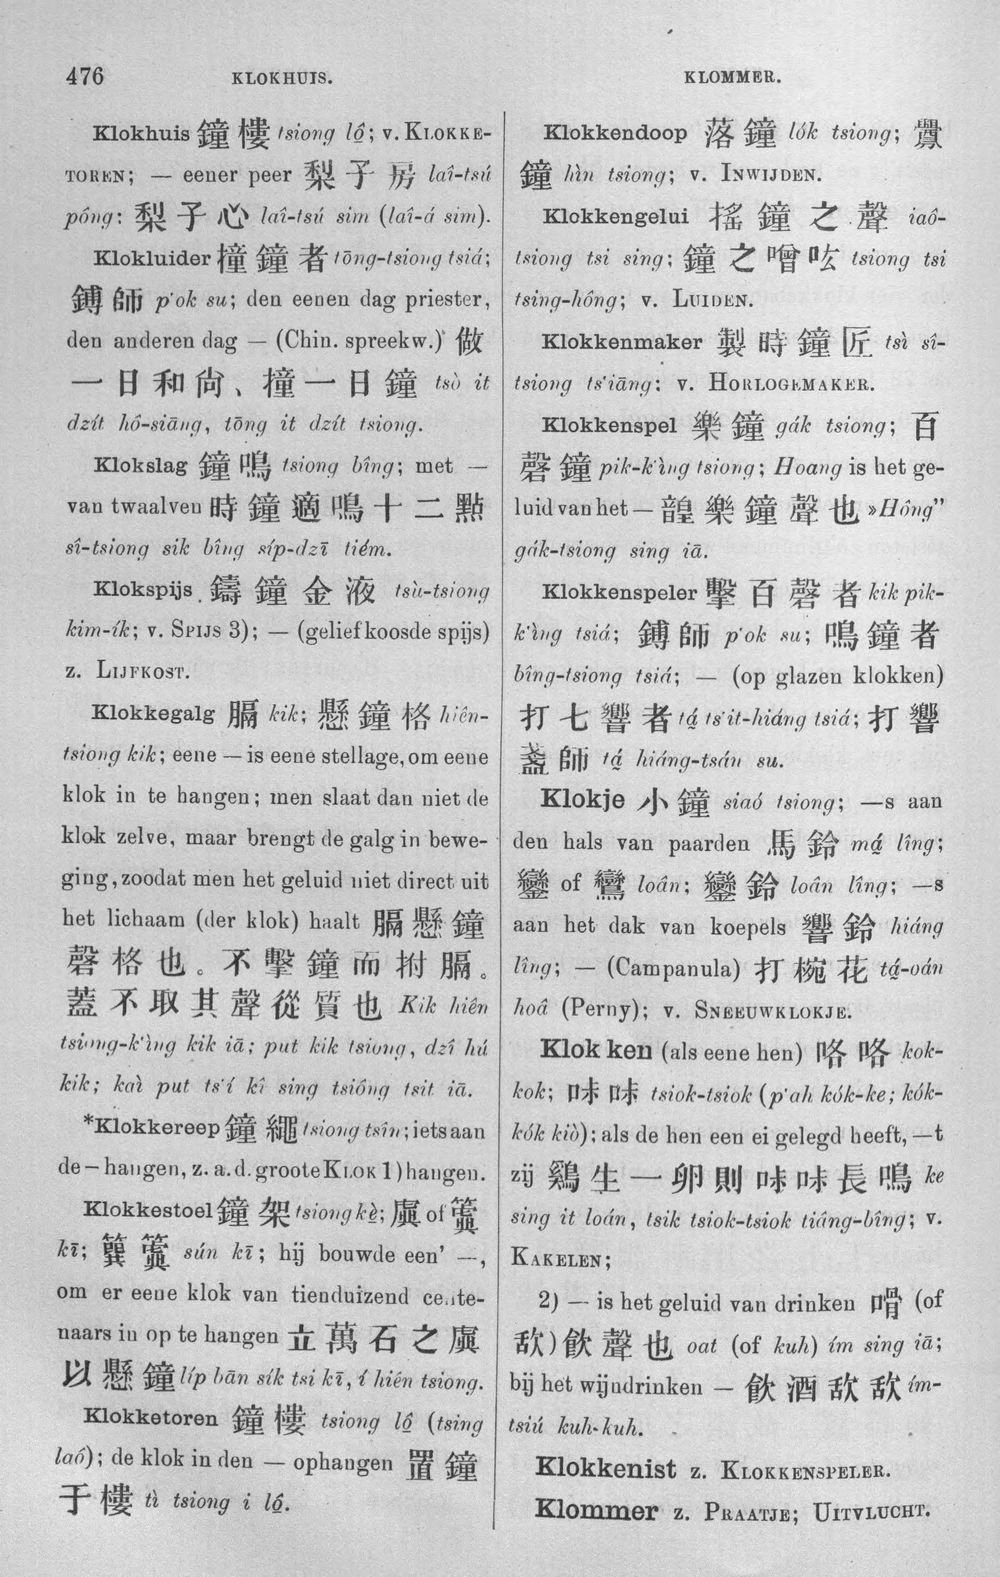 476
KLOKHUIS.
KLOMMER.
Klokhuis 鐘樓 tsiong lô̤; v. KLOKKE-
TOREN; — eener peer 梨子房 laî-tsú
póng: 梨子心 laî-tsú sim (laî-á sim).
Klokluider 撞鐘者 tōng-tsiong tsiá;
鎛師 p'ok su; den eenen dag priester,
den anderen dag — (Chin. spreekw.) 做
一日和尙、撞一日鐘 tsò it
dzít hô-siāng, tōng it dzít tsiong.
Klokslag 鐘鳴 tsiong bîng; met —
van twaalven 時鐘適鳴十二點
sî-tsiong sik bîng síp-dzī tiém.
Klokspijs 鑄鐘金液 tsù-tsiong
kim-ík; v. SPIJS 3); — (geliefkoosde spijs)
z. LIJFKOST.
Klokkegalg 膈 kik; 懸鐘格 hiên-
tsiong kik; eene — is eene stellage, om eene
klok in te hangen; men slaat dan niet de
klok zelve, maar brengt de galg in bewe-
ging, zoodat men het geluid niet direct uit
het lichaam (der klok) haalt 膈懸鐘
磬格也。不擊鐘而拊膈。
蓋不取其聲從質也 Kik hiên
tsiong-k'ìng kik iā; put kik tsiong, dzî hú
kik; kaì put ts'í kî sing tsióng tsit iā.
*Klokkereep 鐘繩 tsiong tsîn; iets aan
de — hangen, z. a. d. groote KLOK 1) hangen.
Klokkestoel 鐘架 tsiong kè̤; 虡 of 簴
kī; 簨簴 sún kī; hij bouwde een' —,
om er eene klok van tienduizend cente-
naars in op te hangen 立萬石之虡
以懸鐘 líp bān sík tsi kī, í hiên tsiong.
Klokketoren 鐘樓 tsiong lô̤ (tsing
laô); de klok in den — ophangen 置鐘
于樓 tì tsiong i lô̤.
Klokkendoop 落鐘 lók tsiong; 釁
鐘 hìn tsiong; v. INWIJDEN.
Klokkengelui 搖鐘之聲 iaô-
tsiong tsi sing; 鐘之噌吰 tsiong tsi
tsing-hông; v. LUIDEN.
Klokkenmaker 製時鐘匠 tsì sî-
tsiong ts'iāng; v. HORLOGEMAKER.
Klokkenspel 樂鐘 gák tsiong; 百
磬鐘 pik-k'ìng tsiong; Hoang is het ge-
luid van het — 韹樂鐘聲也 »Hông"
gák-tsiong sing iā.
Klokkenspeler 擊百磬者 kik pik-
k'ìng tsiá; 鎛師 p'ok su; 鳴鐘者
bîng-tsiong tsiá; — (op glazen klokken)
打七響者 tá̤ ts'it-hiáng tsiá; 打響
盞師 tá̤ hiáng-tsán su.
Klokje 小鐘 siaó tsiong; —s aan
den hals van paarden 馬鈴 má̤ lîng;
鑾 of 鸞 loân; 鑾鈴 loân lîng; —s
aan het dak van koepels 響鈴 hiáng
lîng; — (Campanula) 打椀花 tá̤-oán
hoâ (Perny); v. SNEEUWKLOKJE.
Klokken (als eene hen) 咯咯 kok-
kok; 㕲㕲 tsiok-tsiok (p'ah kók-ke; kók-
kók kiò); als de hen een ei gelegd heeft, —t
zij 鷄生一卵則㕲㕲長鳴 ke
sing it loán, tsik tsiok-tsiok tiâng-bîng; v.
KAKELEN;
2) — is het geluid van drinken 嗗 (of
㰤) 飲聲也 oat (of kuh) ím sing iā;
bij het wijndrinken — 飲酒㰤㰤 ím-
tsiú kuh-kuh.
Klokkenist z. KLOKKENSPELER.
Klommer z. PRAATJE; UITVLUCHT.